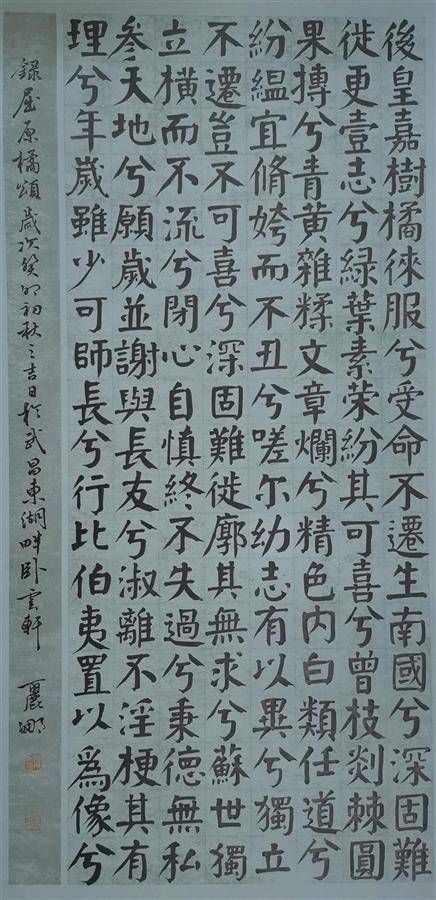 後皇嘉樹橘徠服兮受命不遷生南國兮深固難
徙更壹志兮綠葉素荣紛其可喜兮曾枝剡棘圓
果摶兮青黄雜糅文章爛兮精色内白類任道兮
紛緼宜脩姱而不丑兮嗟尔幼志有以異兮獨立
不遷豈不可喜兮深固難徙廓其無求兮蘇世獨
立横而不流兮閉心自慎終不失過兮秉德無私
叅天地兮願歲並謝與長友兮淑離不淫梗其有
理兮年歲雖少可師長兮行比伯夷置以為像兮
録屈原橘頌歲次癸卯初秋之吉日於武昌東湖畔卧雲軒 麗娜